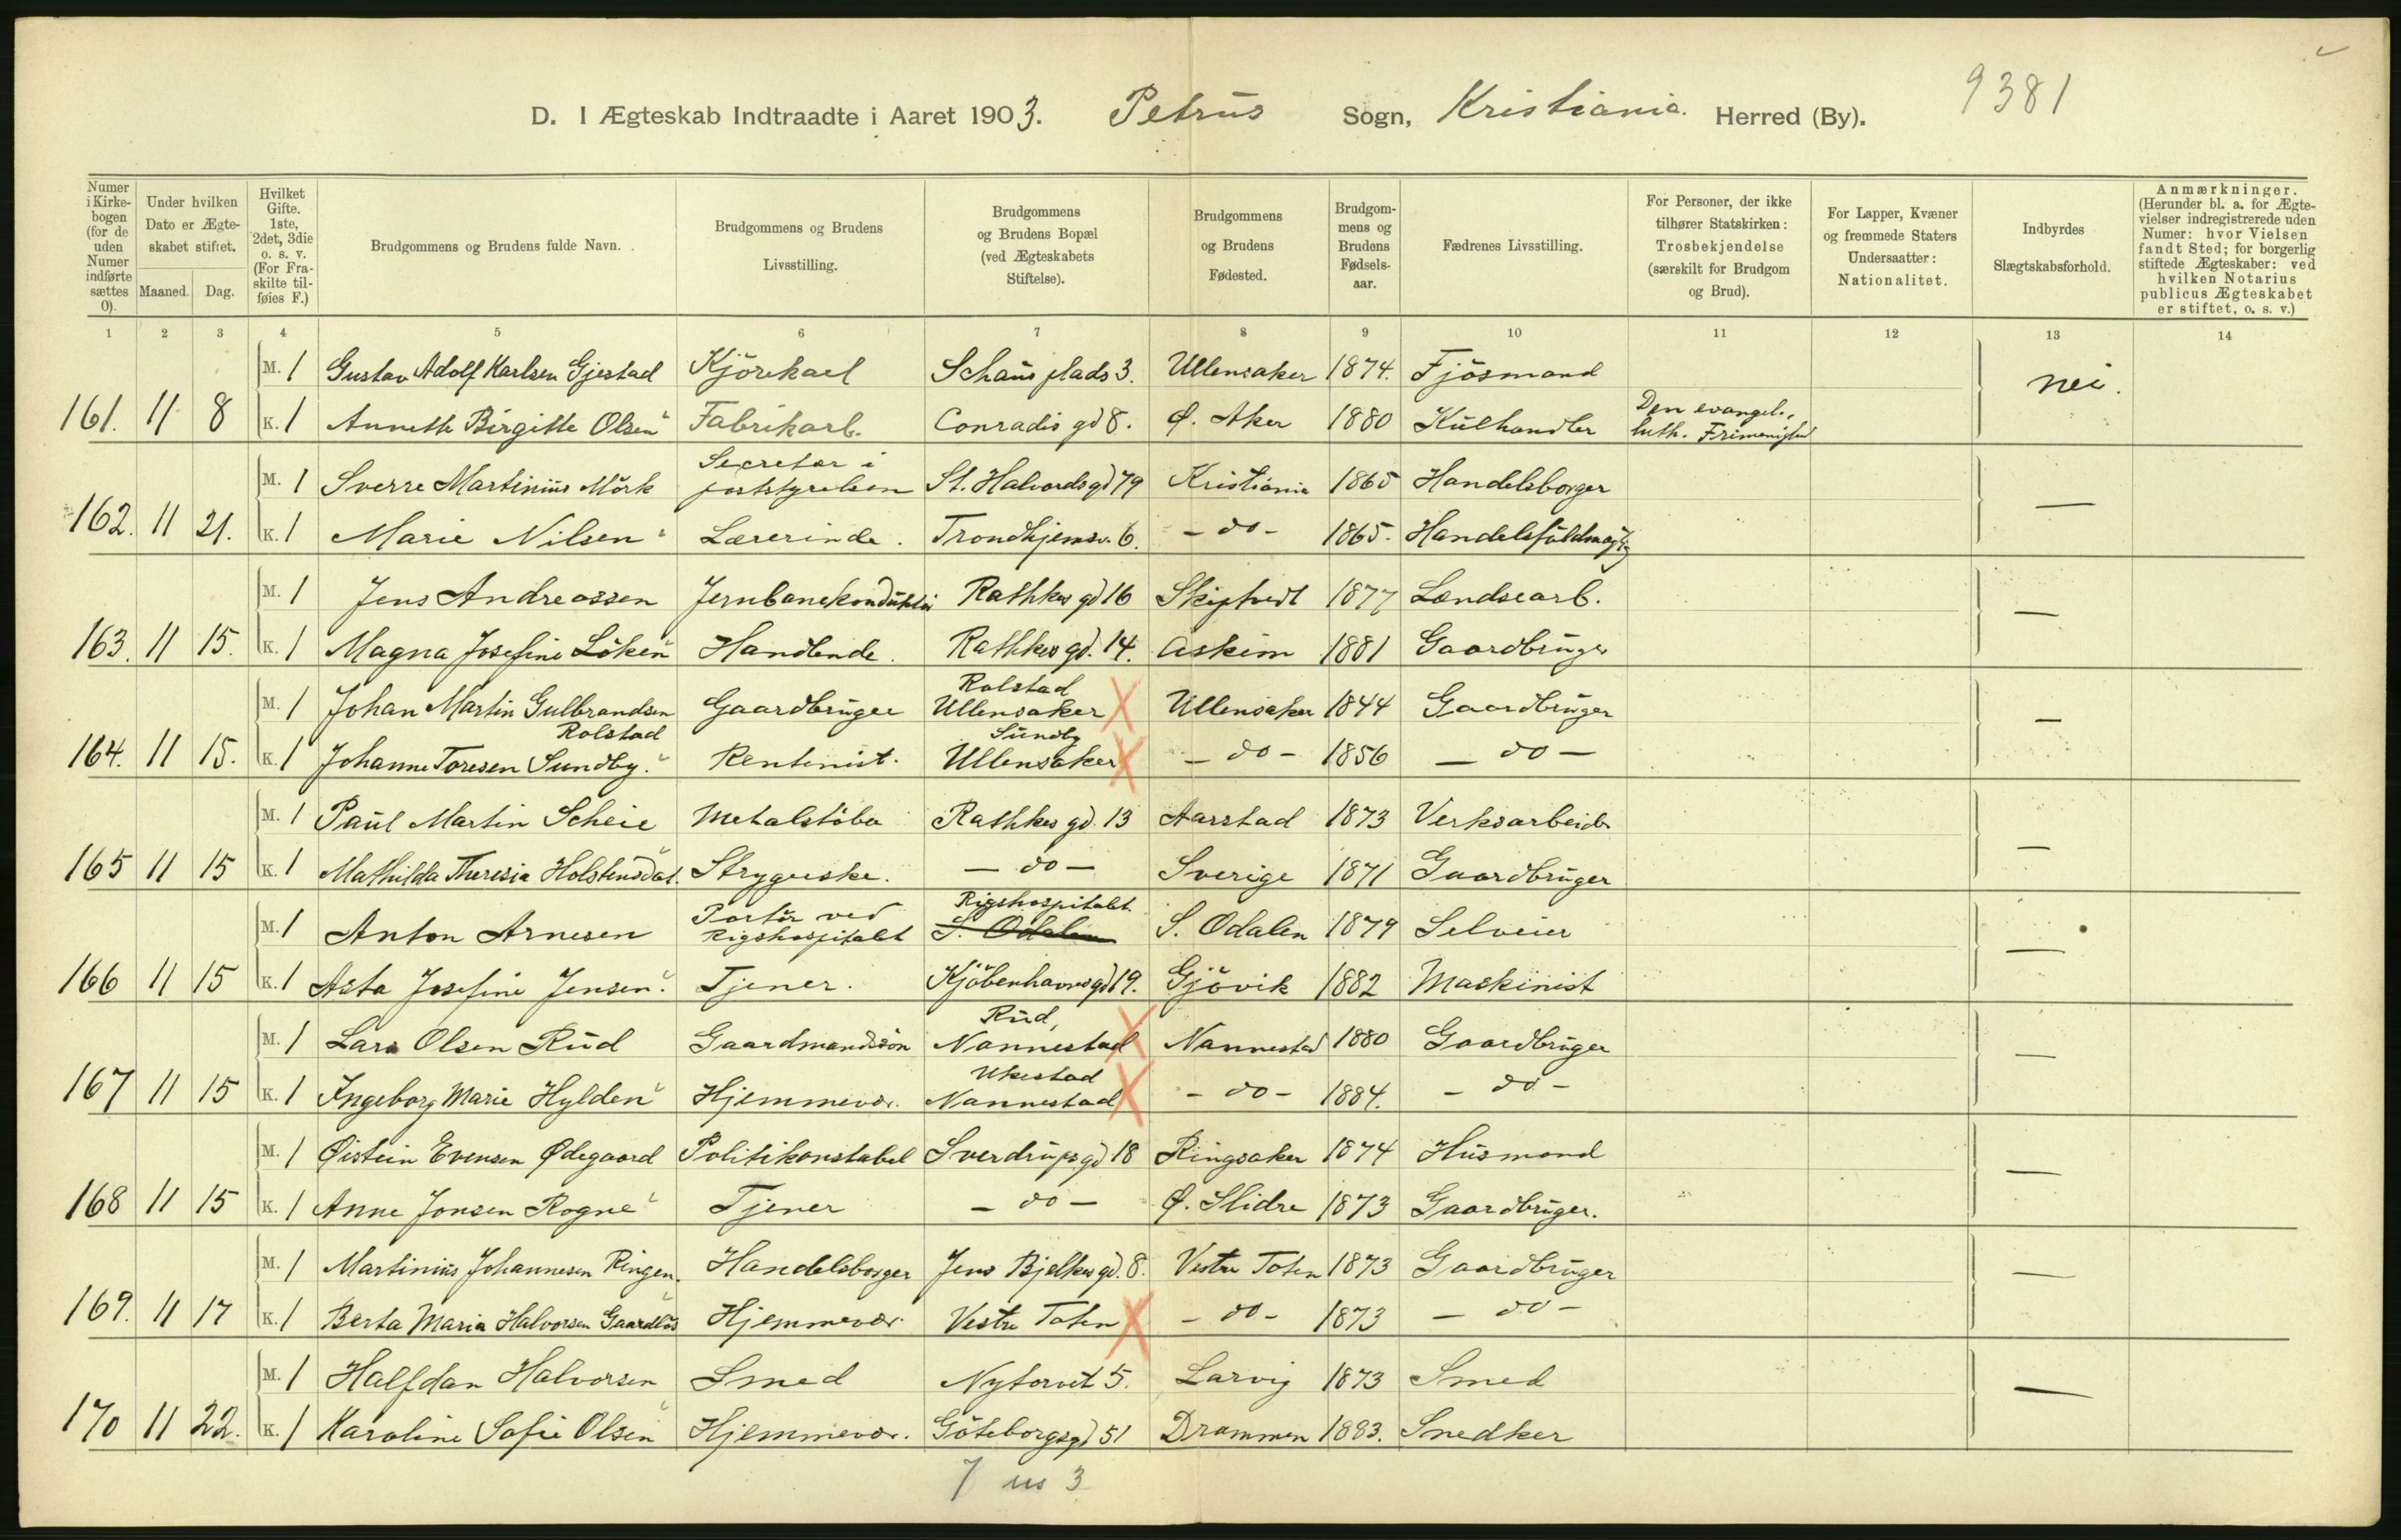 9381
D. I Ægteskab Indtraadte i Aaret 1903. Petrus Sogn, Kristiania. Herred (By).
Numer i Kirkebogen (for de uden Numer indførte sættes 0).
Under hvilken Dato er Ægteskabet stiftet.
Maaned. Dag.
Hvilket Gifte. 1ste, 2det, 3die o. s. v. (For Fraskilte tilføies F.)
Brudgommens og Brudens fulde Navn.
Brudgommens og Brudens Livsstilling.
Brudgommens og Brudens Bopæl (ved Ægteskabets Stiftelse).
Brudgommens og Brudens Fødested.
Brudgommens og Brudens Fødselsaar.
Fædrenes Livsstilling.
For Personer, der ikke tilhører Statskirken: Trosbekjendelse (særskilt for Brudgom og Brud).
For Lapper, Kvæner og fremmede Staters Undersaatter: Nationalitet.
Indbyrdes Slægtskabsforhold.
Anmærkninger. (Herunder bl. a. for Ægtevielser indregistrerede uden Numer: hvor Vielsen fandt Sted; for borgerlig stiftede Ægteskaber: ved hvilken Notarius publicus Ægteskabet er stiftet, o. s. v.)
1 2 3 4 5 6 7 8 9 10 11 12 13 14
M. 1 Gustav Adolf Karlsen Gjestad Kjörekarl Schaus plads 3. Ullensaker 1874. Fjösmand nei.
161. 11 8 K. 1 Annette Birgitte Olsen Fabrikarb. Conradis gd 8. Ø. Aker 1880 Kulhandler Den evangel. luth. Frimenighed
M. 1 Sverre Martinius Mörk Secretær i poststyrelsen St. Halvards gd 79 Kristiania 1865 Handelsborger —
162. 11 21. K. 1 Marie Nilsen Lærerinde. Trondhjemsv. 6. - do - 1865. Handelsfuldmægtig
M. 1 Jens Andreassen Jernbanekonduktør Rathkes gd 16 Skiptvedt 1877 Landsearb. —
163. 11 15. K. 1 Magna Josefine Löken Handlende. Rathkes gd. 14. Askim 1881 Gaardbruger
M. 1 Johan Martin Gulbrandsen Rolstad Gaardbruger Rolstad Ullensaker Ullensaker 1844 Gaardbruger —
164. 11 15. K. 1 Johanne Toresen Sundby. Rentenist. Sundby Ullensaker - do - 1856 - do -
M. 1 Paul Martin Scheie Metalstöber Rathkes gd. 13 Aarstad 1873 Verksarbeider —
165 11 15 K. 1 Mathilda Theresia Holstensdat. Strygerske. - do - Sverige 1871 Gaardbruger
M. 1 Anton Arnesen Portör ved Rigshospitalet Rigshospitalet S. Odalen S. Odalen 1879 Selveier —
166 11 15 K. 1 Asta Josefine Jensen. Tjener. Kjöbenhavns gd 19. Gjövik 1882 Maskinist
M. 1 Lars Olsen Rud Gaardmandssön Rud, Nannestad Nannestad 1880 Gaardbruger —
167 11 15 K. 1 Ingeborg Marie Hylden Hjemmevær. Ukestad Nannestad - do - 1884. - do -
M. 1 Øistein Evensen Ødegaard Politikonstabel Sverdrups gd 18 Ringsaker 1874 Husmand —
168 11 15 K. 1 Anne Jonsen Rogne Tjener - do - Ø. Slidre 1873 Gaardbruger.
M. 1 Martinius Johannesen Ringen. Handelsborger Jens Bjelkes gd. 8. Vestre Toten 1873 Gaardbruger —
169. 11 17 K. 1 Berta Maria Halvorsen Gaardløs Hjemmevær. Vestre Toten - do - 1873 - do -
M. 1 Halfdan Halvorsen Smed Nytorvet 5. Larvig 1873 Smed —
170 11 22. K. 1 Karoline Sofie Olsen Hjemmevær. Göteborgsgd 51 Drammen 1883. Snedker
7 3